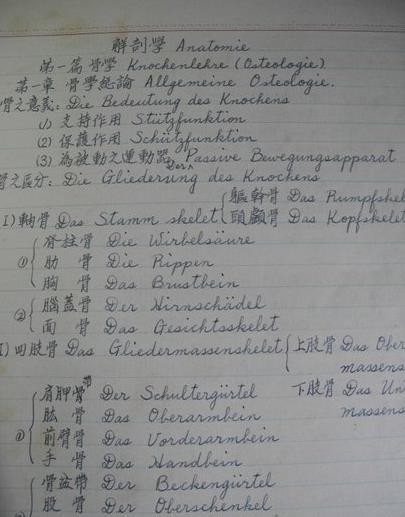 解剖學 Anatomie
第一篇 骨學 Knochenlehre (Osteologie).
第一章 骨學總論 Allgemeine Osteologie.
骨之意義: Die Bedeutung des Knochens
(1) 支持作用 Stützfunktion
(2) 保護作用 Schützfunktion
(3) 為被動之運動器 Der Passive Bewegungsapparat
骨之區分: Die Gliederung des Knochens
I) 軸骨 Das Stamm skelet { 軀幹骨 Das Rumpfskel
頭顱骨 Das Kopfskelet
① { 脊柱骨 Die Wirbelsäure
肋 骨 Die Rippen
胸 骨 Das Brustbein
② { 腦蓋骨 Der Hirnschädel
面 骨 Das Gesichtsskelet
I) 四肢骨 Das Gliedermassenskelet { 上肢骨 Das Ober
massens
下肢骨 Das Un
massens
① { 肩胛骨帶 Der Schultergürtel
肱 骨 Das Oberarmbein
前臂骨 Das Vorderarmbein
手 骨 Das Handbein
骨盆帶 Der Beckengürtel
股 骨 Der Oberschenkel